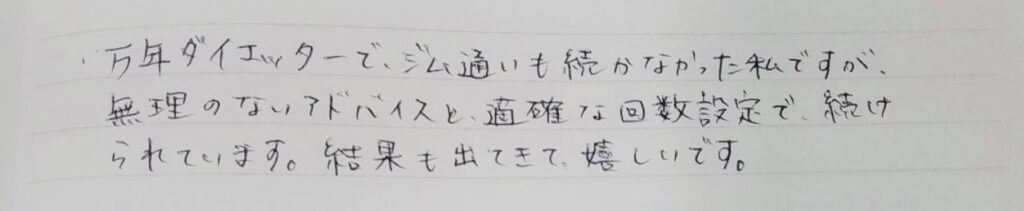 万年ダイエッターで、ジム通いも続かなかった私ですが、
無理のないアドバイスと、適確な回数設定で、続け
られています。結果も出てきて、嬉しいです。